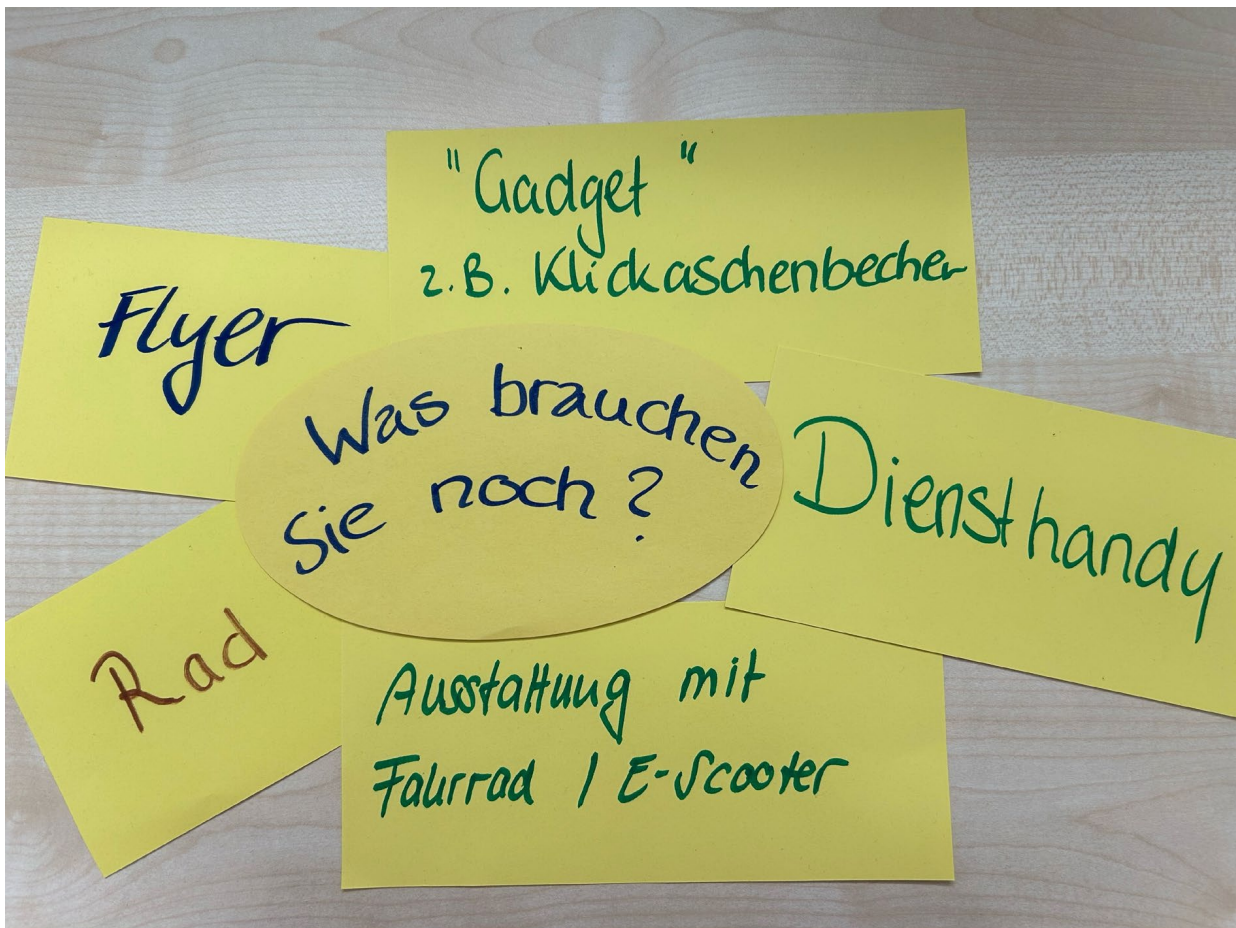 "Gadget"
z.B. Klickaschenbecher
Flyer
Was brauchen
Sie noch?
Diensthandy
Rad
Ausstattung mit
Fahrrad / E-Scooter